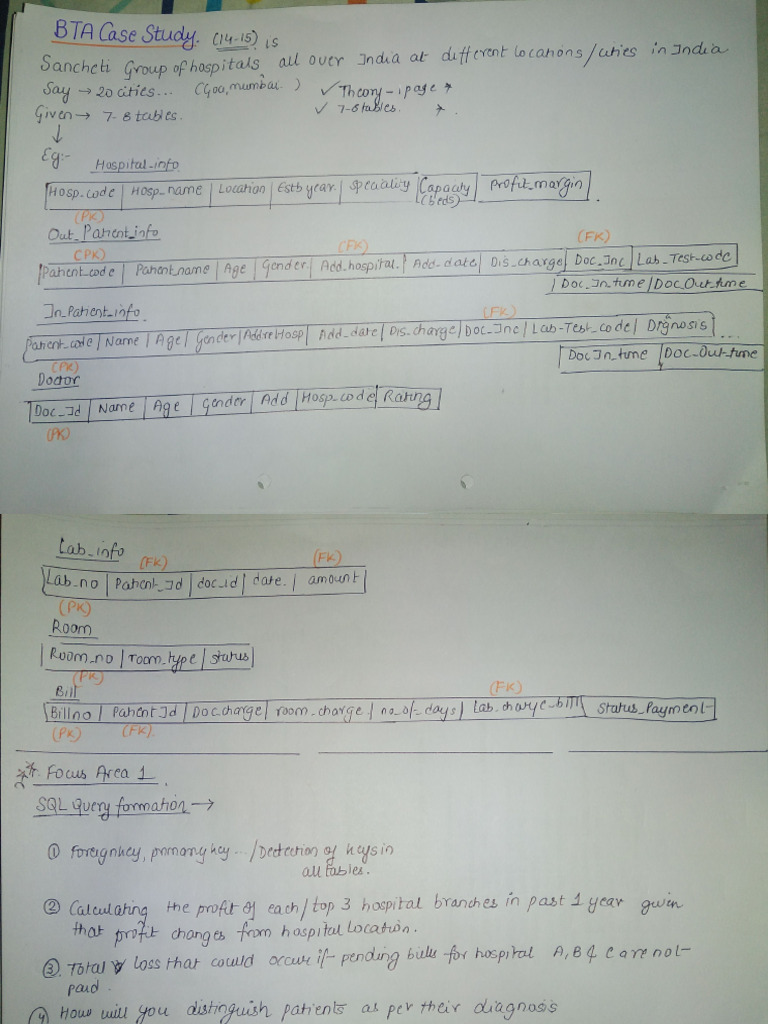 BTA Case Study. (14-15) is
Sancheti Group of hospitals all over India at different locations/cities in India
Say → 20 cities... (Goa, mumbai. ) ✓ Theory - 1 page *
Given → 7-8 tables. ✓ 7-8 tables. *
↓
Eg:-
Hospital_info
Hosp_code | Hosp_name | Location | Estb year. | Speciality | Capacity (beds) | Profit_margin
(PK)
Out_Patient_info
(CPK) (FK) (FK)
Patient_code | Patient_name | Age | Gender. | Add_hospital. | Add_date | Dis_charge | Doc_Inc | Lab_Test_code
Doc_In_time | Doc_Out_time
In_Patient_info
(FK)
Patient_code | Name | Age | Gender | Addre Hosp | Add_date | Dis_charge | Doc_Inc | Lab-Test_code | Dignosis ...
(PK) Doc In_time | Doc_Out_time
Doctor
Doc_Id | Name | Age | Gender | Add | Hosp_code | Rating
(PK)
Lab_info
(FK) (FK)
Lab_no | Patient_Id | doc_id | date. | amount
(PK)
Room
Room_no | room_type | status
(PK)
Bill
(FK)
Bill no | Patient Id | Doc.charge | room_charge | no_of_days | Lab_charge_bill | Status_Payment
(PK) (FK).
** Focus Area 1.
SQL Query formation →
① Foreign key, primary key... / Detection of keys in
all tables.
② Calculating the profit of each/top 3 hospital branches in past 1 year given
that profit changes from hospital location.
③. Total loss that could occur if pending bills for hospital A, B & C are not
paid.
④ How will you distinguish patients as per their diagnosis